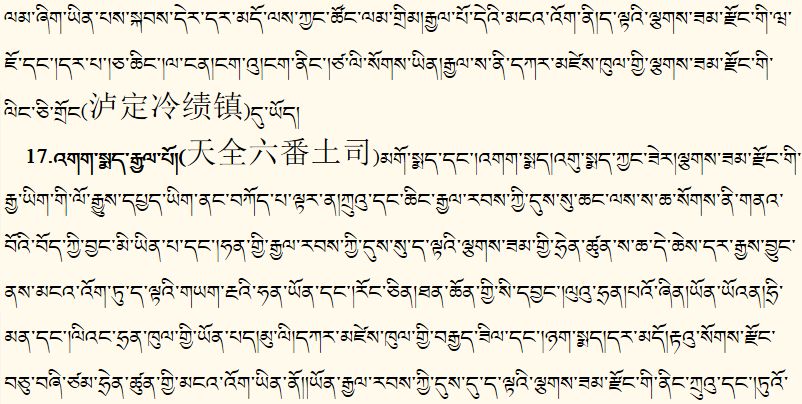 ལམ་ཞིག་ཡིན་པས་སྐབས་དེར་དར་མདོ་ལས་ཀྱང་ཚོང་ལམ་གྲིམ།རྒྱལ་པོ་དེའི་མངའ་འོག་ནི།ད་ལྟའི་ལྕགས་ཟམ་རྫོང་གི་ཝ་
ཇོ་དང་།དར་པ་།ཅ་ཆིང་།ལ་ངན།ངག་འུ།ངག་ནིང་།ཙ་ལི་སོགས་ཡིན།རྒྱལ་ས་ནི་དཀར་མཛེས་ཁུལ་གྱི་ལྕགས་ཟམ་རྫོང་གི་
ལིང་ཅི་གྲོང(泸定冷绩镇)དུ་ཡོད།
17.འགག་སྨད་རྒྱལ་པོ།(天全六番土司)མགོ་སྨད་དང་།འགག་སྨད།འགུ་སྨད་ཀྱང་ཟེར།ལྕགས་ཟམ་རྫོང་གི་
རྒྱ་ཡིག་གི་ལོ་རྒྱུས་དཔྱད་ཡིག་ནང་བཀོད་པ་ལྟར་ན།ཀྲུའུ་དང་ཆིང་རྒྱལ་རབས་ཀྱི་དུས་སུ་ཆང་ལས་ས་ཆ་སོགས་ནི་གནའ་
བོའི་བོད་ཀྱི་བྱང་མི་ཡིན་པ་དང་།ཧན་གྱི་རྒྱལ་རབས་ཀྱི་དུས་སུ་ད་ལྟའི་ལྕགས་ཟམ་གྱི་ཧྲེན་ཚུན་ས་ཆ་དེ་ཆེས་དར་རྒྱས་བྱུང་
ནས་མངའ་འོག་ཏུ་ད་ལྟའི་གཡག་རྔའི་ཧན་ཡོན་དང་།རོང་ཅིན།ཐན་ཚོན་གྱི་སི་དབྱང་།ལུའུ་ཧྲན།པའོ་ཞིན།ཡོན་ཡོའན།ཧྲི་
མན་དང་།ལིའང་ཧྲན་ཁུལ་གྱི་ཡོན་པད།མུ་ལི།དཀར་མཛེས་ཁུལ་གྱི་བརྒྱད་ཟིལ་དང་།ཉག་སྨད།དར་མདོ།རྟའུ་སོགས་རྫོང་
བཅུ་བཞི་ཙམ་ཧྲེན་ཚུན་གྱི་མངའ་འོག་ཡིན་ནོ།།ཡོན་རྒྱལ་རབས་ཀྱི་དུས་དུ་ད་ལྟའི་ལྕགས་ཟམ་རྫོང་གི་ནིང་ཀྲུའུ་དང་།ཏུའོ་